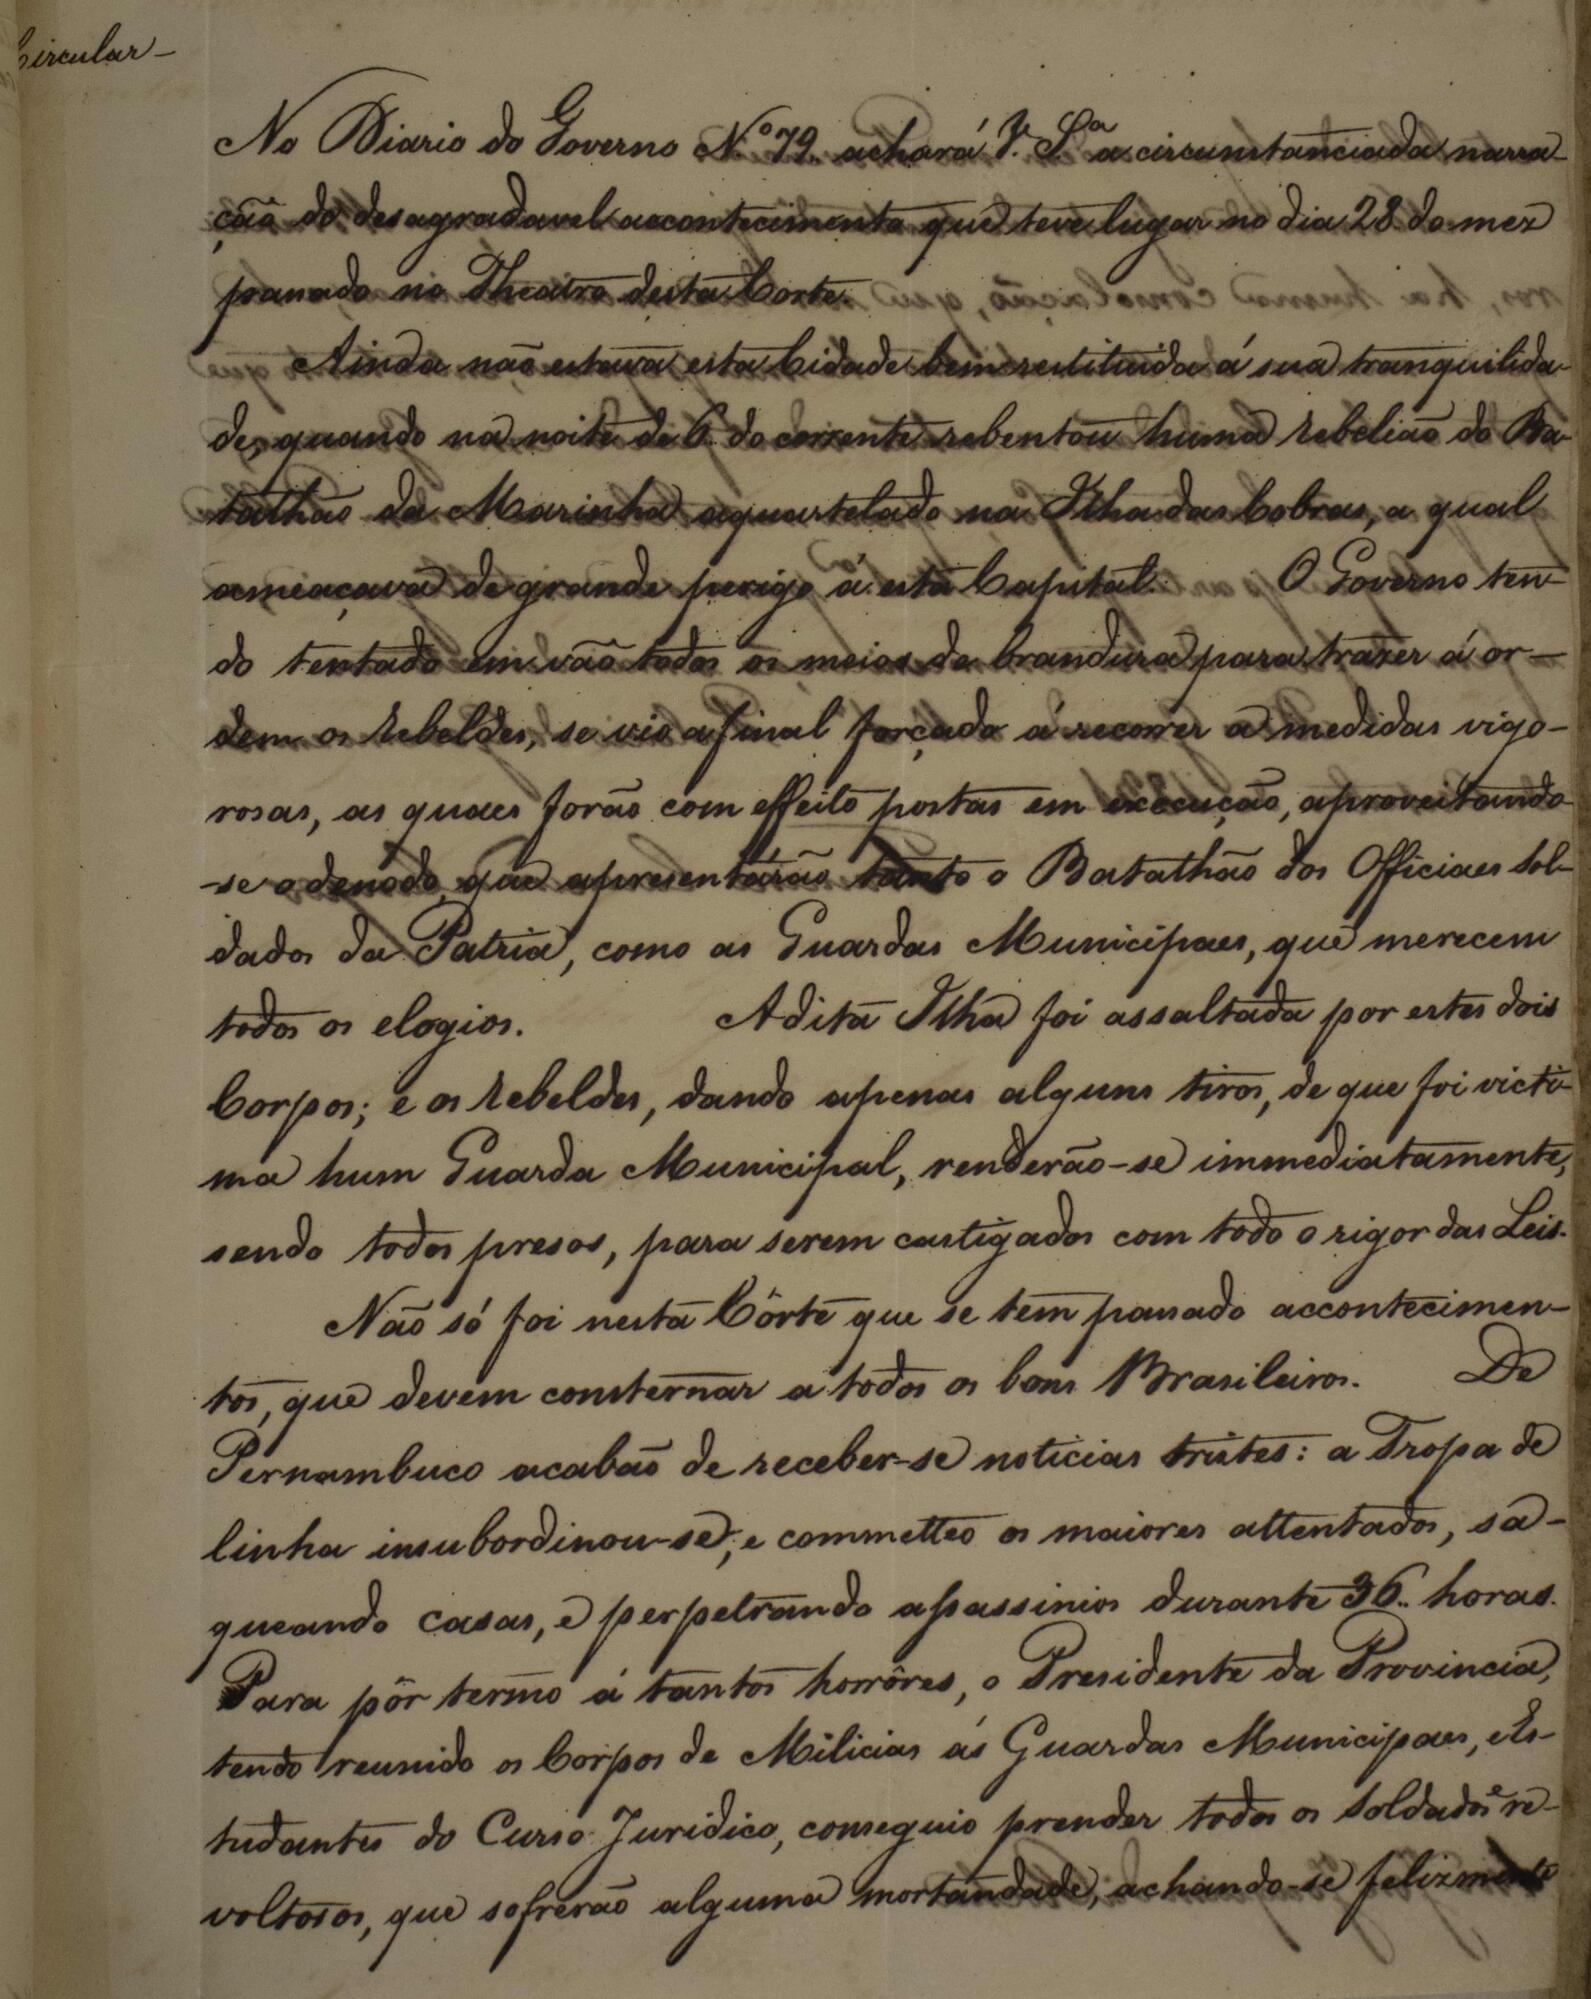 Circular –
No Diario do Governo Nº 79.. achará V. Sª a circumstanciada narra-
ção do desagradavel accontecimento que teve lugar no dia 28 do mez
passado no Theatro desta Corte.
Ainda não estava esta Cidade bem restituida á sua tranquilida-
de, quando na noite de 6 do corrente rebentou huma rebelião do Ba-
talhão da Marinha aquartelado na Ilha das Cobras, a qual
ameaçava de grande perigo á esta Capital. O Governo ten-
do tentado em vão todos os meios de brandura para trazer á or-
dem os rebeldes, se vio afinal forçado á recorrer a medidas vigo-
rosas, as quaes forão com effeito postas em execução, aproveitando
-se o denodo, que apresentárão tanto o Batalhão dos Officiaes sol-
dados da Patria, como as Guardas Municipaes, que merecem
todos os elogios. A dita Ilha foi assaltada por estes dois
Corpos; e os rebeldes, dando apenas alguns tiros, de que foi victi-
ma hum Guarda Municipal, renderão-se immediatamente,
sendo todos presos, para serem castigados com todo o rigor das Leis.
Não só foi nesta Côrte que se tem passado accontecimen-
tos, que devem consternar a todos os bons Brasileiros. De
Pernambuco acabão de receber-se noticias tristes: a Tropa de
linha insubordinou-se, e commetteo os maiores attentados, sa-
queando casas, e perpetrando assassinios durante 36.. horas.
Para pôr termo á tantos horrôres, o Presidente da Provincia,
tendo reunido os Corpos de Milicias ás Guardas Municipaes, e Es-
tudantes do Curso Juridico, conseguio prender todos os soldados e re-
voltosos, que sofrerão alguma mortandade, achando-se felizmente